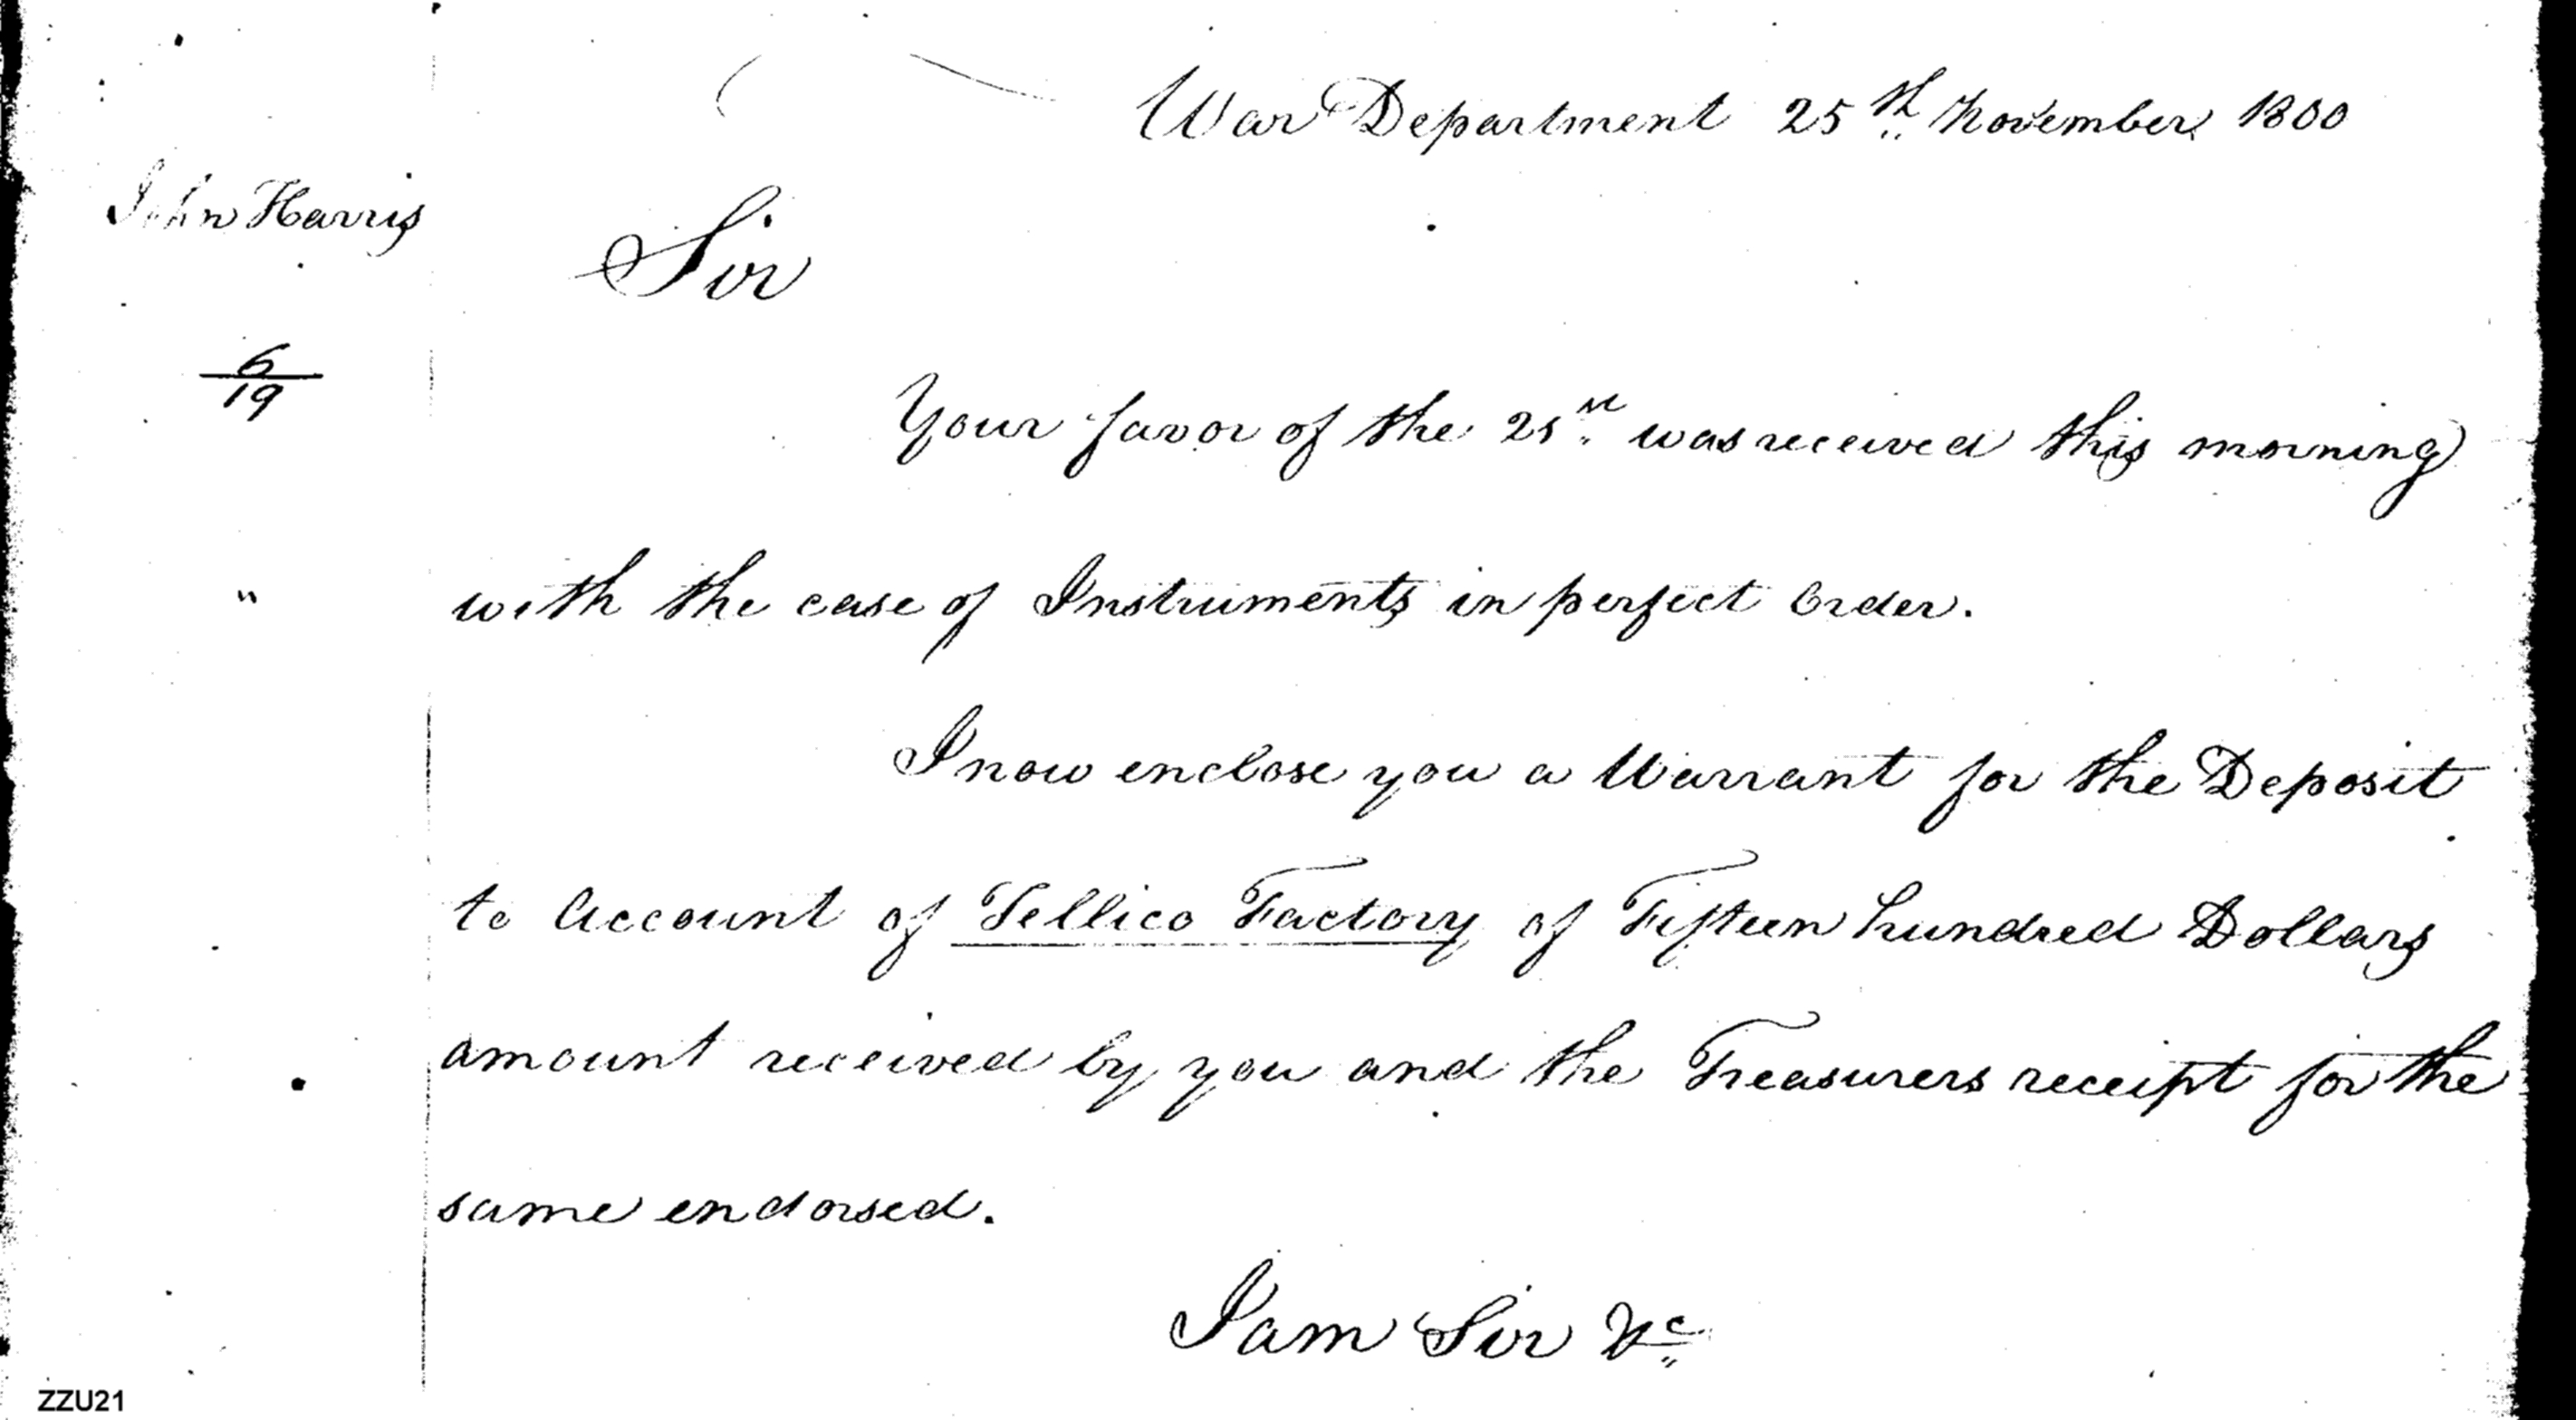 War Department 25th November 1800
John Harris
Sir
6
19
Your favor of the 21st was received this morning
"
with the case of Instruments in perfect Order.
I now enclose you a Warrant for the Deposit
to Account of Tellico Factory of Fifteen hundred Dollars
amount received by you and the Treasurers receipt for the
same endorsed.
I am Sir &c
ZZU21